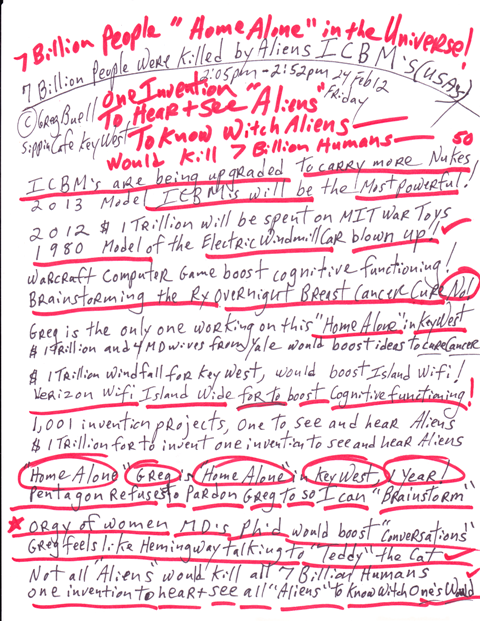 7 Billion People "Home Alone" in the Universe!
7 Billion People Were Killed by Aliens ICBM's (USA's)
2:05pm - 2:52pm 24 Feb 12
Friday
© Greg Buell
Sippin Cafe Key West
One Invention
To Hear + See "Aliens"
To Know Witch Aliens
Would Kill 7 Billion Humans 50
ICBM's are being upgraded to carry more Nukes
2013 Model ICBM's will be the Most Powerful!
2012 $1 Trillion will be spent on MIT War Toys
1980 Model of the Electric Windmill Car blown up!
Warcraft Computer Game boost cognitive functioning!
Brainstorming the Rx Overnight Breast Cancer Cure No!
Greg is the only one working on this "Home Alone" in Key West
$1Trillion and 4 MD wives from Yale would boost ideas to cure Cancer
$1Trillion windfall for Key West, would boost Island Wifi!
Verizon Wifi Island Wide for to boost Cognitive functioning!
1,001 invention projects, one to see and hear Aliens
$1Trillion for to invent one invention to see and hear Aliens
"Home Alone" Greg is "Home Alone" in Key West, 1 Year!
Pentagon Refuses to Pardon Greg to so I can "Brainstorm"
* orgy of women MD's Ph'd would boost "Conversations"
Greg feels like Hemingway talking to "Teddy" the Cat
Not all "Aliens" would kill all 7 Billion Humans
one invention to hear + see all "Aliens" to Know Witch One's Would